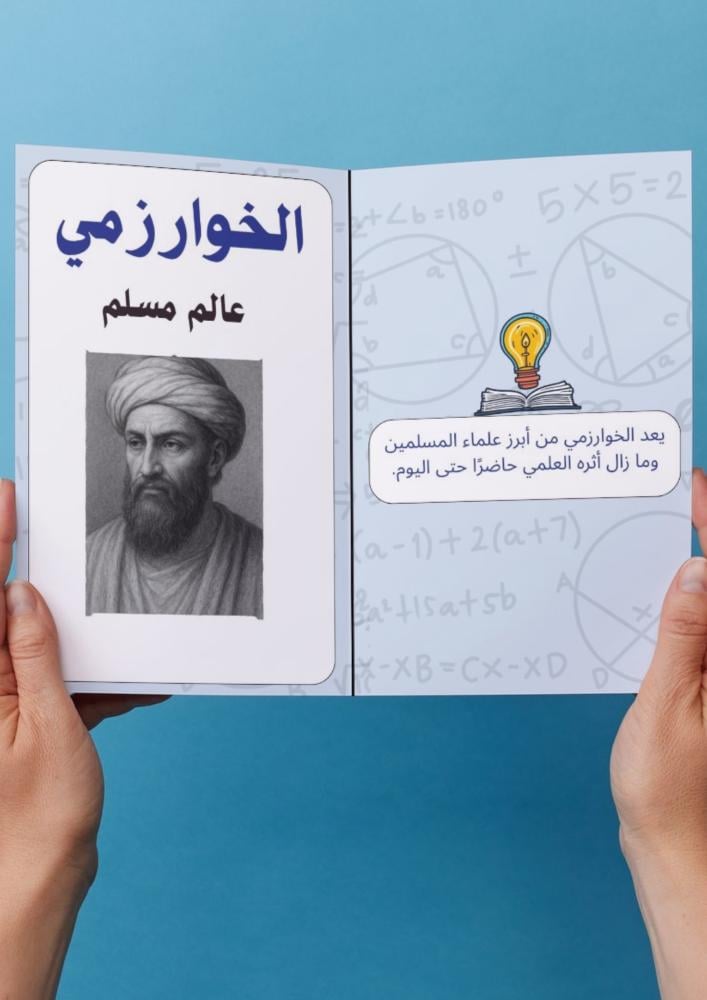 الخوارزمي
عالم مسلم
يعد الخوارزمي من أبرز علماء المسلمين
وما زال أثره العلمي حاضرًا حتى اليوم.
2+∠b=180°
5×5=2
±
a
d
b
c
b
c
d
a
(a-1)+2(a+7)
2a²+15a+5b
A
X
D
X-XB=CX-XD